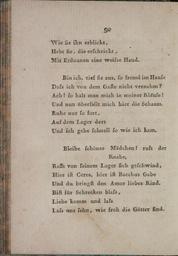 90
Wie sie ihn erblickt,
Hebt sie, die erschrickt,
Mit Erstaunen eine weiße Hand.
Bin ich, rief sie aus, so fremd im Hause
Daß ich von dem Gaste nichts vernahm?
Ach! so hält man mich in meiner Klause!
Und nun überfällt mich hier die Schaam.
Ruhe nur so fort,
Auf dem Lager dort
Und ich gehe schnell so wie ich kam.
Bleibe schönes Mädchen! ruft der
Knabe,
Rafft von seinem Lager sich geschwind,
Hier ist Ceres, hier ist Bacchus Gabe
Und du bringst den Amor liebes Kind.
Bist für Schrecken blaß,
Liebe komm und laß
Laß uns sehn, wie froh die Götter sind.